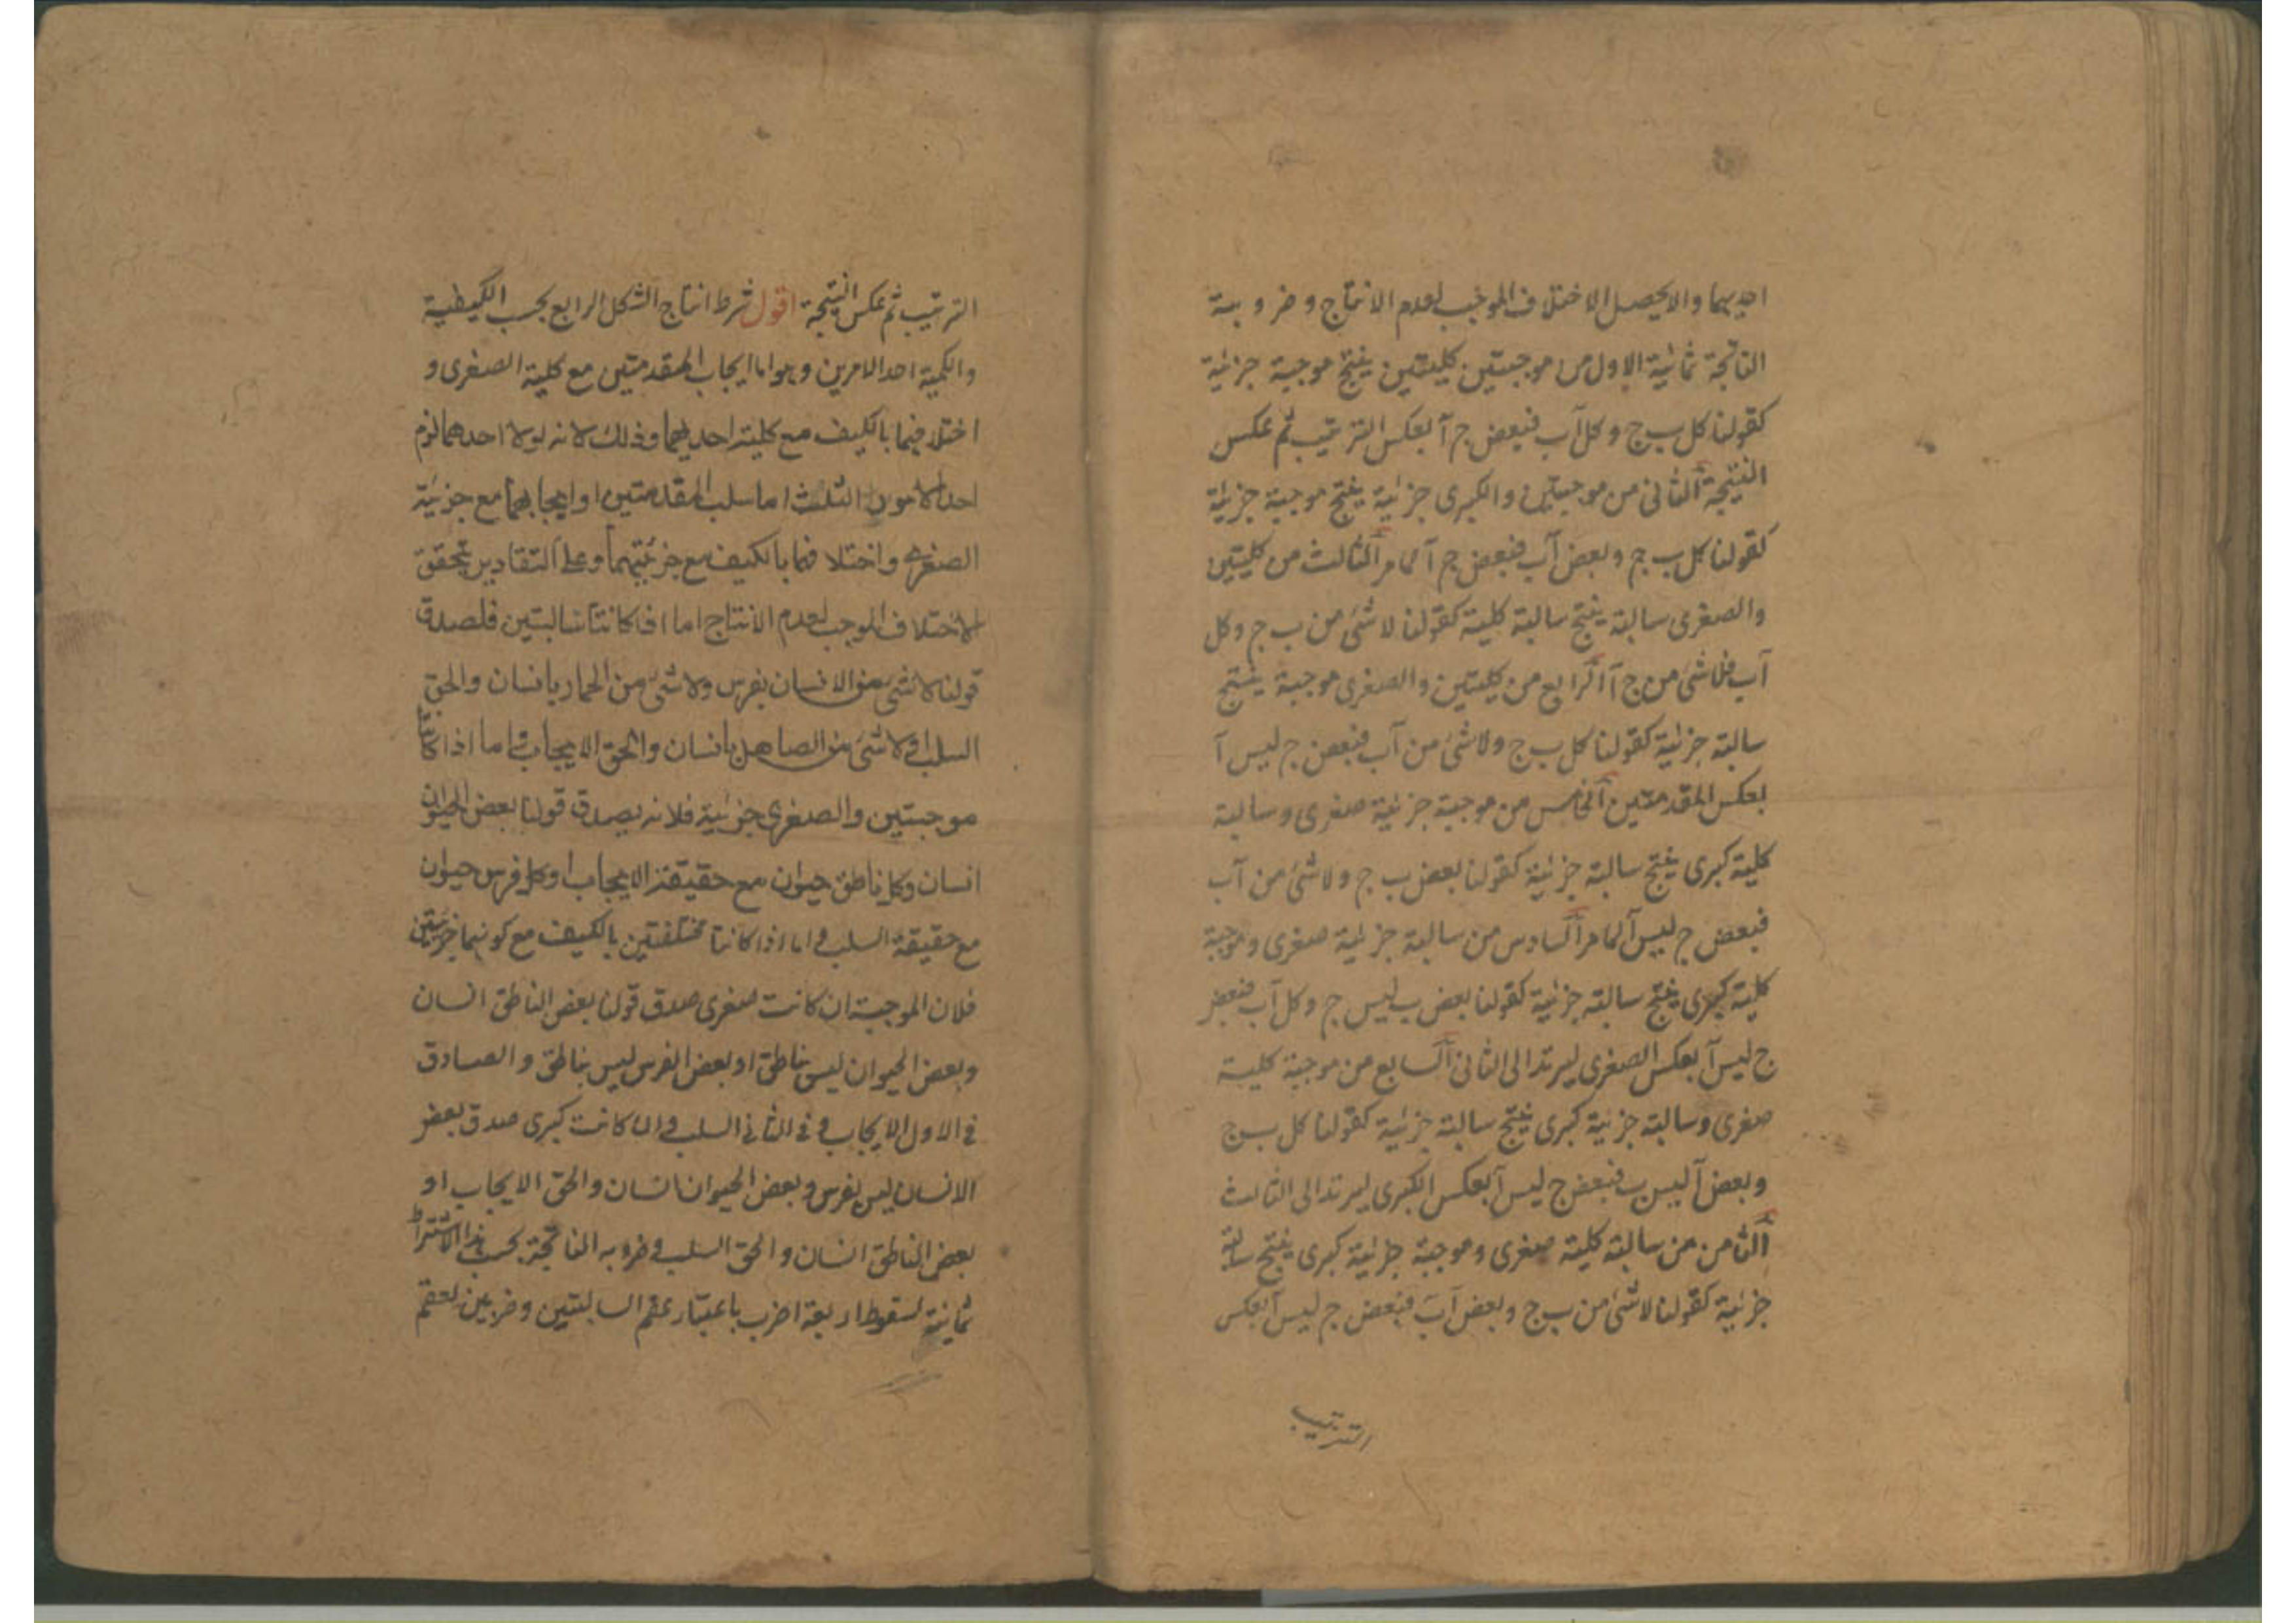 احديهما والا يحصل الاختلاف الموجب لعدم الانتاج وضروبه
الناتجة ثمانية الاول من موجبتين كليتين ينتج موجبة جزئية
كقولنا كل ب ج وكل آ ب فبعض ج آ بعكس الترتيب ثم عكس
النتيجة الثاني من موجبتين والكبرى جزئية ينتج موجبة جزئية
كقولنا كل ب ج وبعض آ ب فبعض ج آ لما مر الثالث من كليتين
والصغرى سالبة ينتج سالبة كلية كقولنا لا شئ من ب ج وكل
آ ب فلا شئ من ج آ الرابع من كليتين والصغرى موجبة ينتج
سالبة جزئية كقولنا كل ب ج ولا شئ من آ ب فبعض ج ليس آ
بعكس المقدمتين الخامس من موجبة جزئية صغرى وسالبة
كلية كبرى ينتج سالبة جزئية كقولنا بعض ب ج ولا شئ من آ ب
فبعض ج ليس آ لما مر السادس من سالبة جزئية صغرى وموجبة
كلية كبرى ينتج سالبة جزئية كقولنا بعض ب ليس ج وكل آ ب فبعض
ج ليس آ بعكس الصغرى ليرتد الى الثاني السابع من موجبة كلية
صغرى وسالبة جزئية كبرى ينتج سالبة جزئية كقولنا كل ب ج
وبعض آ ليس ب فبعض ج ليس آ بعكس الكبرى ليرتد الى الثالث
الثامن من سالبة كلية صغرى وموجبة جزئية كبرى ينتج سالبة
جزئية كقولنا لا شئ من ب ج وبعض آ ب فبعض ج ليس آ بعكس
الترتيب
الترتيب ثم عكس النتيجة اقول شرط انتاج الشكل الرابع بحسب الكيفية
والكمية احد الامرين وهو اما ايجاب المقدمتين مع كلية الصغرى و
اختلافهما بالكيف مع كلية احديهما وذلك لانه لولا احدهما لزم
احد الامور الثلث اما سلب المقدمتين او ايجابهما مع جزئية
الصغرى واختلافهما بالكيف مع جزئيتهما وعلى التقادير يتحقق
الاختلاف الموجب لعدم الانتاج اما اذا كانتا سالبتين فلصدق
قولنا لا شئ من الانسان بفرس ولا شئ من الحمار بانسان والحق
السلب او لا شئ من الصاهل بانسان والحق الايجاب واما اذا كانتا
موجبتين والصغرى جزئية فلانه يصدق قولنا بعض الحيوان
انسان وكل ناطق حيوان مع حقيقة الايجاب او كل فرس حيوان
مع حقيقة السلب واما اذا كانتا مختلفتين بالكيف مع كونهما جزئيتين
فلان الموجبة ان كانت صغرى صدق قولنا بعض الناطق انسان
وبعض الحيوان ليس بناطق او بعض الفرس ليس بناطق والصادق
في الاول الايجاب وفي الثاني السلب وان كانت كبرى صدق بعض
الانسان ليس بفرس وبعض الحيوان انسان والحق الايجاب او
بعض الناطق انسان والحق السلب وضروبه الناتجة بحسب هذا الاشتراط
ثمانية لسقوط اربعة اضرب باعتبار عقم السالبتين وضربين لعقم